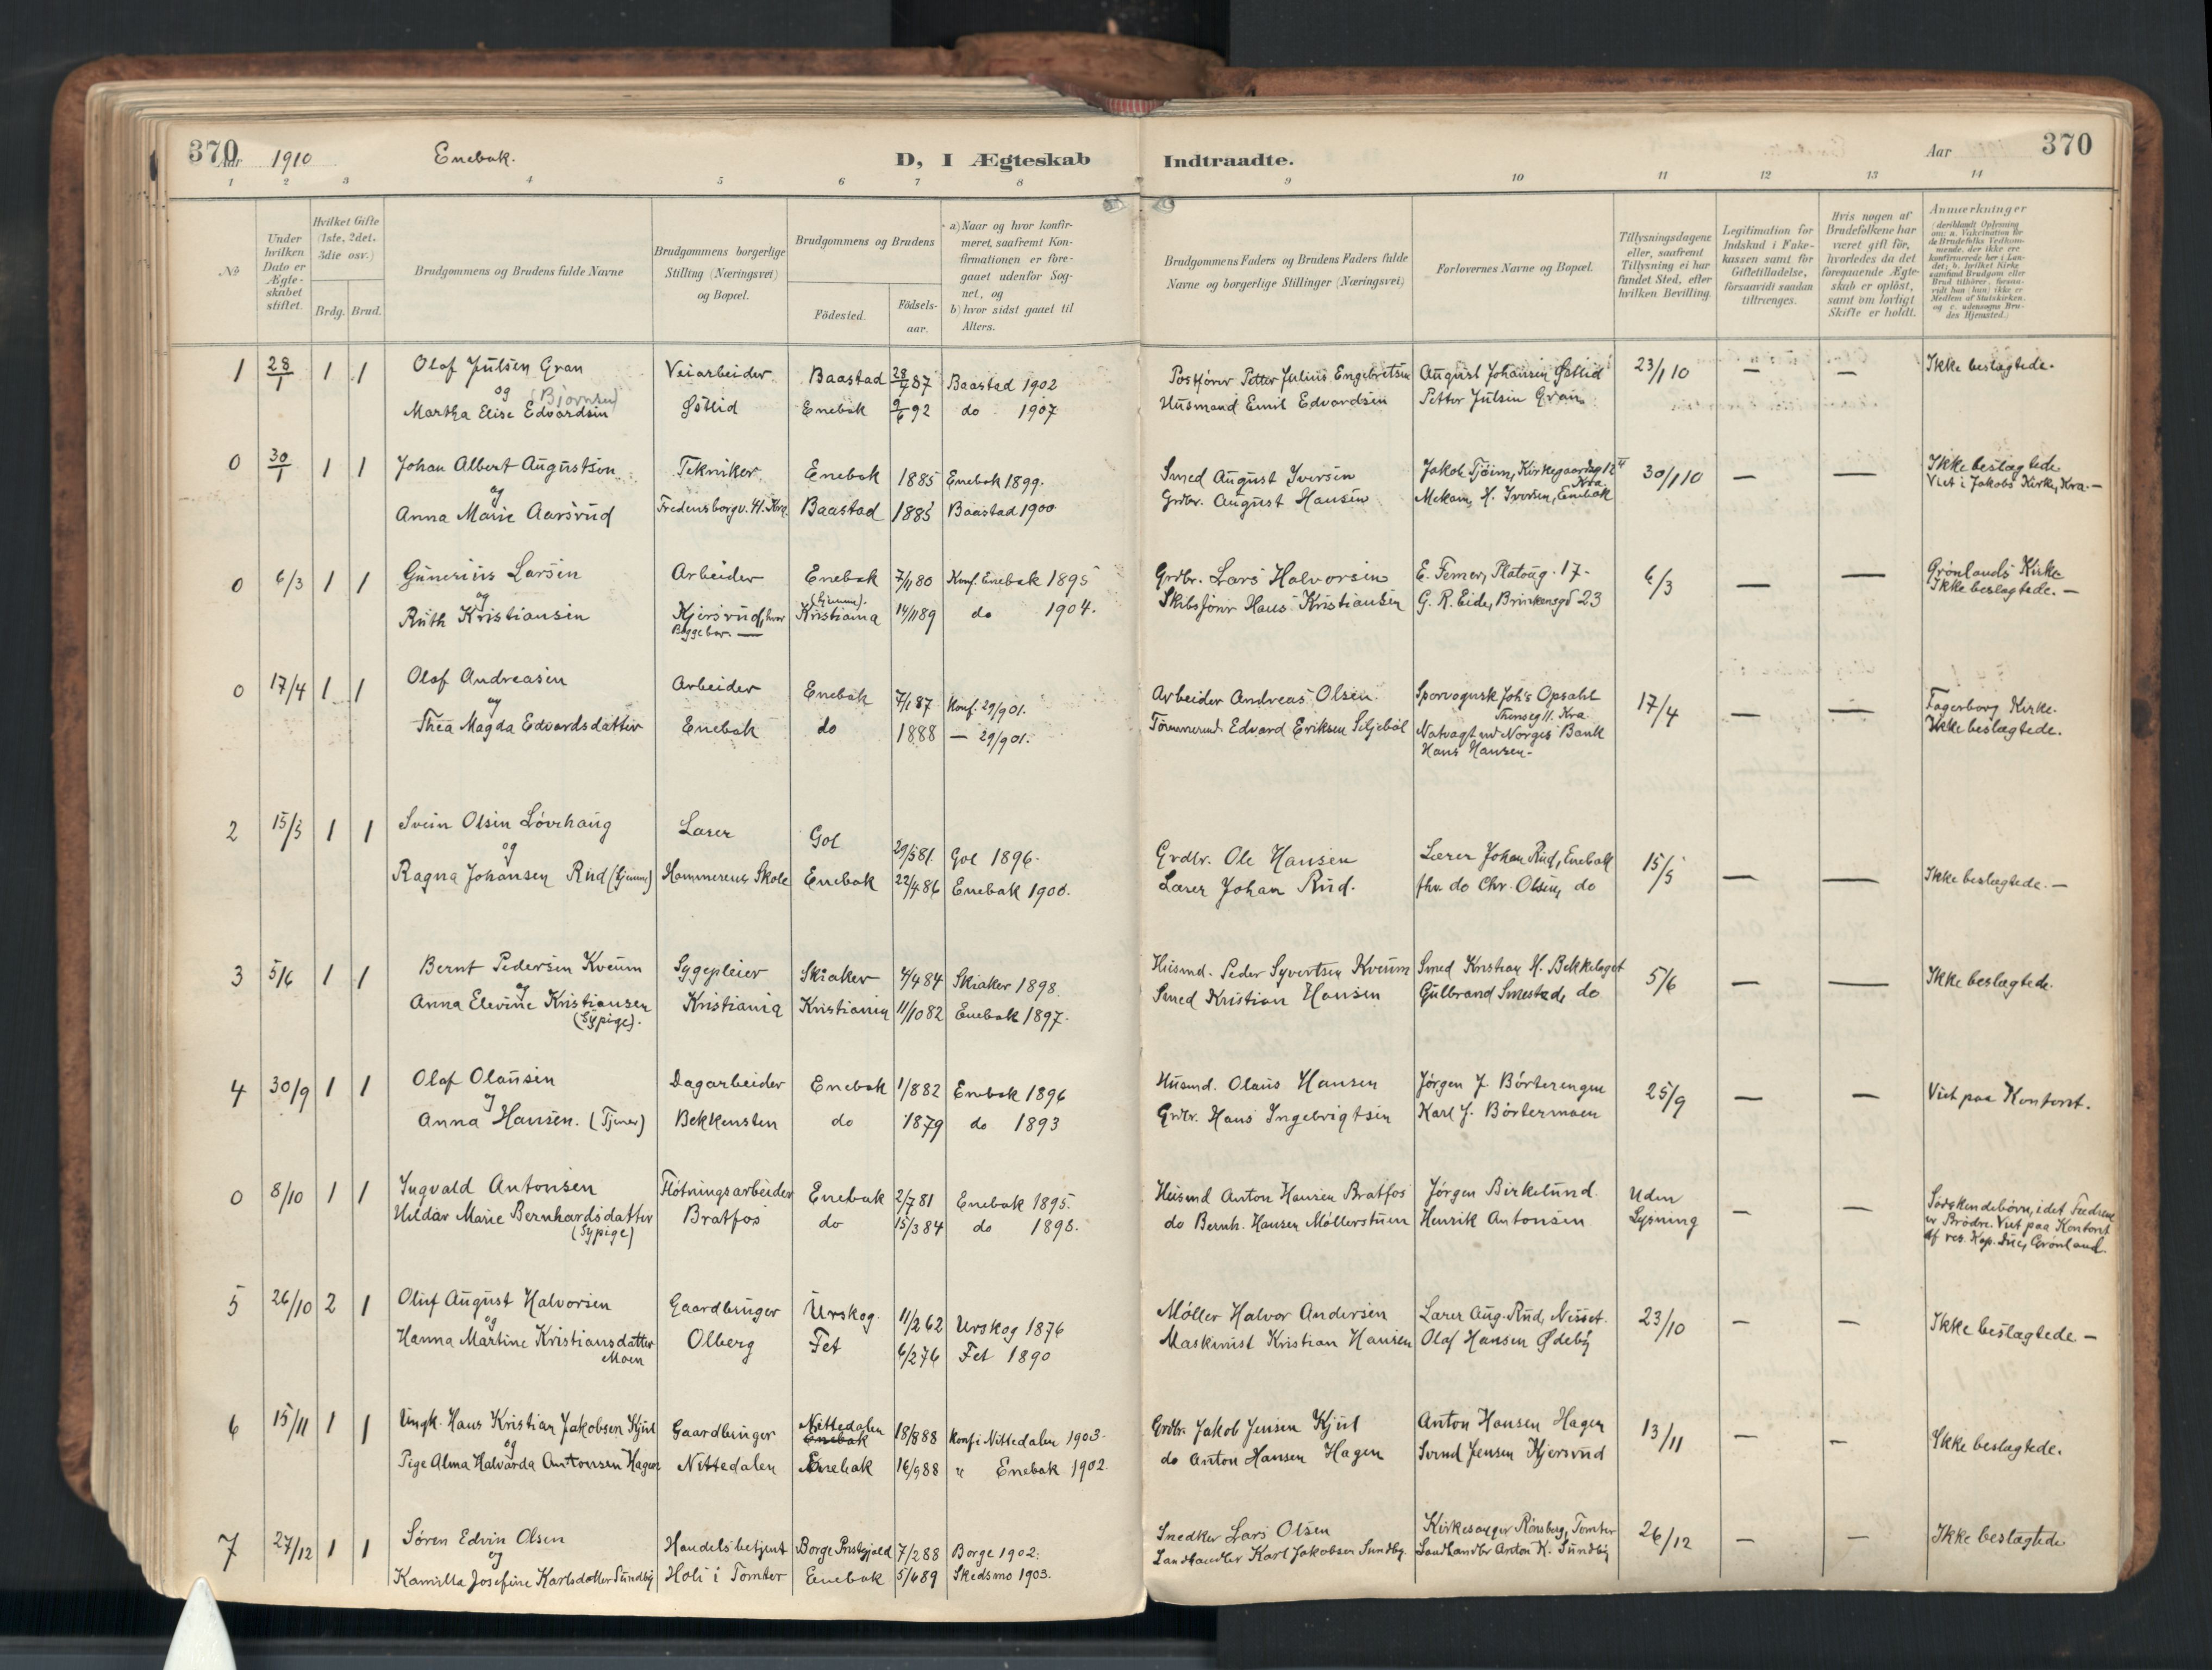 370 Aar 1910 Enebak. D, I Ægteskab Indtraadte. Aar 370
1 2 3 4 5 6 7 8 9 10 11 12 13 14
No
Under hvilken Dato er Ægteskabet stiftet.
Hvilket Gifte (1ste, 2det, 3die osv.)
Brdg. Brud.
Brudgommens og Brudens fulde Navne
Brudgommens borgerlige Stilling (Næringsvei) og Bopæl.
Brudgommens og Brudens
Födested. Födselsaar.
a) Naar og hvor konfirmeret, saafremt Konfirmationen er foregaaet udenfor Sognet, og
b) hvor sidst gaaet til Alters.
Brudgommens Faders og Brudens Faders fulde Navne og borgerlige Stillinger (Næringsvei)
Forlovernes Navne og Bopæl.
Tillysningsdagene eller, saafremt Tillysning ei har fundet Sted, efter hvilken Bevilling.
Legitimation for Indskud i Enkekassen samt for Giftetilladelse, forsaavidt saadan tiltrænges.
Hvis nogen af Brudefolkene har været gift för, hvorledes da det foregaaende Ægteskab er oplöst, samt om lovligt Skifte er holdt.
Anmærkninger (deriblandt Oplysning om: a. Vakcination for de Brudefolks Vedkommende, der ikke ere konfirmerede her i Landet; b. hvilket Kirkesamfund Brudgom eller Brud tilhörer, forsaavidt han (hun) ikke er Medlem af Statskirken, og c. udensogns Brudes Hjemsted.)
1 28/1 1 1 Olaf Julsen Gran Veiarbeider Baastad 28/7 87 Baastad 1902 Postförer Petter Julius Engebretsen August Johansen Östlid 23/1 10 — — Ikke beslægtede.
og (Bjørnsen)
Martha Elise Edvardsen Östlid Enebak 9/6 92 do 1907 Husmand Emil Edvardsen Petter Julsen Gran
0 30/1 1 1 Johan Albert Augustson Tekniker Enebak 1885 Enebak 1899. Smed August Iversen Jakob Tjøim, Kirkegaardsg 12 II Kra. 30/1 10 — — Ikke beslægtede
og Viet i Jakobs Kirke, Kra. —
Anna Marie Aarsrud Fredensborgv. 41. Kra. Baastad 1885 Baastad 1900 Grdbr. August Hansen Mekan, H. Iversen, Enebak
0 6/3 1 1 Gunerius Larsen Arbeider Enebak 7/1 80 Konf. Enebak 1895 Grdbr. Lars Halvorsen E. Femer, Platoug. 17- 6/3 — — Grönlands Kirke
og (hjemme). Ikke beslægtede. —
Ruth Kristiansen Kjersrud, hvor Begge bor. — Kristiania 14/11 89 do 1904. Skibsförer Hans Kristiansen G. R. Eide, Brinkensgd 23
0 17/4 1 1 Olaf Andreasen Arbeider Enebak 7/1 87 Konf. 29/9 01. Arbeider Andreas Olsen. Sporvognsk Joh's Opsahl 17/4 — — Fagerborg Kirke.
og Thorseg 11. Kra
Thea Magda Edvardsdatter Enebak do 1888 — 29/9 01. Tömmermd. Edvard Eriksen Seljeböl Natvagt ved Norges Bank Ikke beslægtede.
Hans Hansen-
2 15/5 1 1 Svein Olsen Lövehaug Lærer Gol 29/5 81 Gol 1896. Grdbr. Ole Hansen Lærer Johan Rud, Enebak 15/5 — — Ikke beslægtede. —
og
Ragna Johansen Rud (hjemme) Hammerens Skole Enebak 22/4 86 Enebak 1900. Lærer Johan Rud. fhv do Chr. Olsen, do
3 5/6 1 1 Bernt Pedersen Kveum Sygepleier Skiaker 4/4 84 Skiaker 1898. Husmd. Peder Syvertsen Kveum Smed Kristian H. Bekkelaget 5/6 — — Ikke beslægtede.
og
Anna Elevine Kristiansen Kristiania Kristiania 11/10 82 Enebak 1897. Smed Kristian Hansen Gulbrand Smestad, do
(Sypige).
4 30/9 1 1 Olaf Olausen Dagarbeider Enebak 1/8 82 Enebak 1896 Husmd. Olaus Hansen Jörgen J. Börterengen 25/9 — — Viet paa Kontoret.
og
Anna Hansen. (Tjener) Bekkensten do 1879 do 1893 Grdbr. Hans Ingebrigtsen Karl J. Börtermoen
0 8/10 1 1 Ingvald Antonsen Flötningsarbeider Enebak 2/7 81 Enebak 1895. Husmd Anton Hansen Bratfos Jörgen Birkelund Uden — — Södskendebörn, idet Fædrene
Hildar Marie Bernhardsdatter Bratfos do 15/3 84 do 1898. do Bernh. Hansen Möllerstuen Henrik Antonsen Lysning er Brödre. Viet paa Kontoret
(Sypige) af res. Kap. Due, Grönland.
5 26/10 2 1 Oluf August Halvorsen Gaardbruger Urskog 11/2 62 Urskog 1876 Möller Halvor Andersen Lærer Aug. Rud, Nesset. 23/10 — — Ikke beslægtede —
og
Hanna Martine Kristiansdatter Olberg Fet 6/2 76 Fet 1890 Maskinist Kristian Hansen Olaf Hansen Ødeby
Moen
6 15/11 1 1 Ungk. Hans Kristian Jakobsen Kjul Gaardbruger Nittedalen Enebak 18/8 88 Konf. i Nittedalen 1903. Grdbr. Jakob Jensen Kjul Anton Hansen Hagen 13/11 — — Ikke beslægtede.
og
Pige Alma Halvarda Antonsen Hagen Nittedalen Enebak 16/9 88 " Enebak 1902. do Anton Hansen Hagen Svend Jensen Kjersrud
7 27/12 1 1 Sören Edvin Olsen Handelsbetjent Borge Prstgjeld 7/2 88 Borge 1902. Snedker Lars Olsen Kirkesanger Rönsberg, Tomter 26/12 — — Ikke beslægtede
og
Kamilla Josefine Karlsdatter Sundby Holi i Tomter Enebak 5/4 89 Skedsmo 1903. Landhandler Karl Jakobsen Sundby. Landhandler Anton K. Sundby